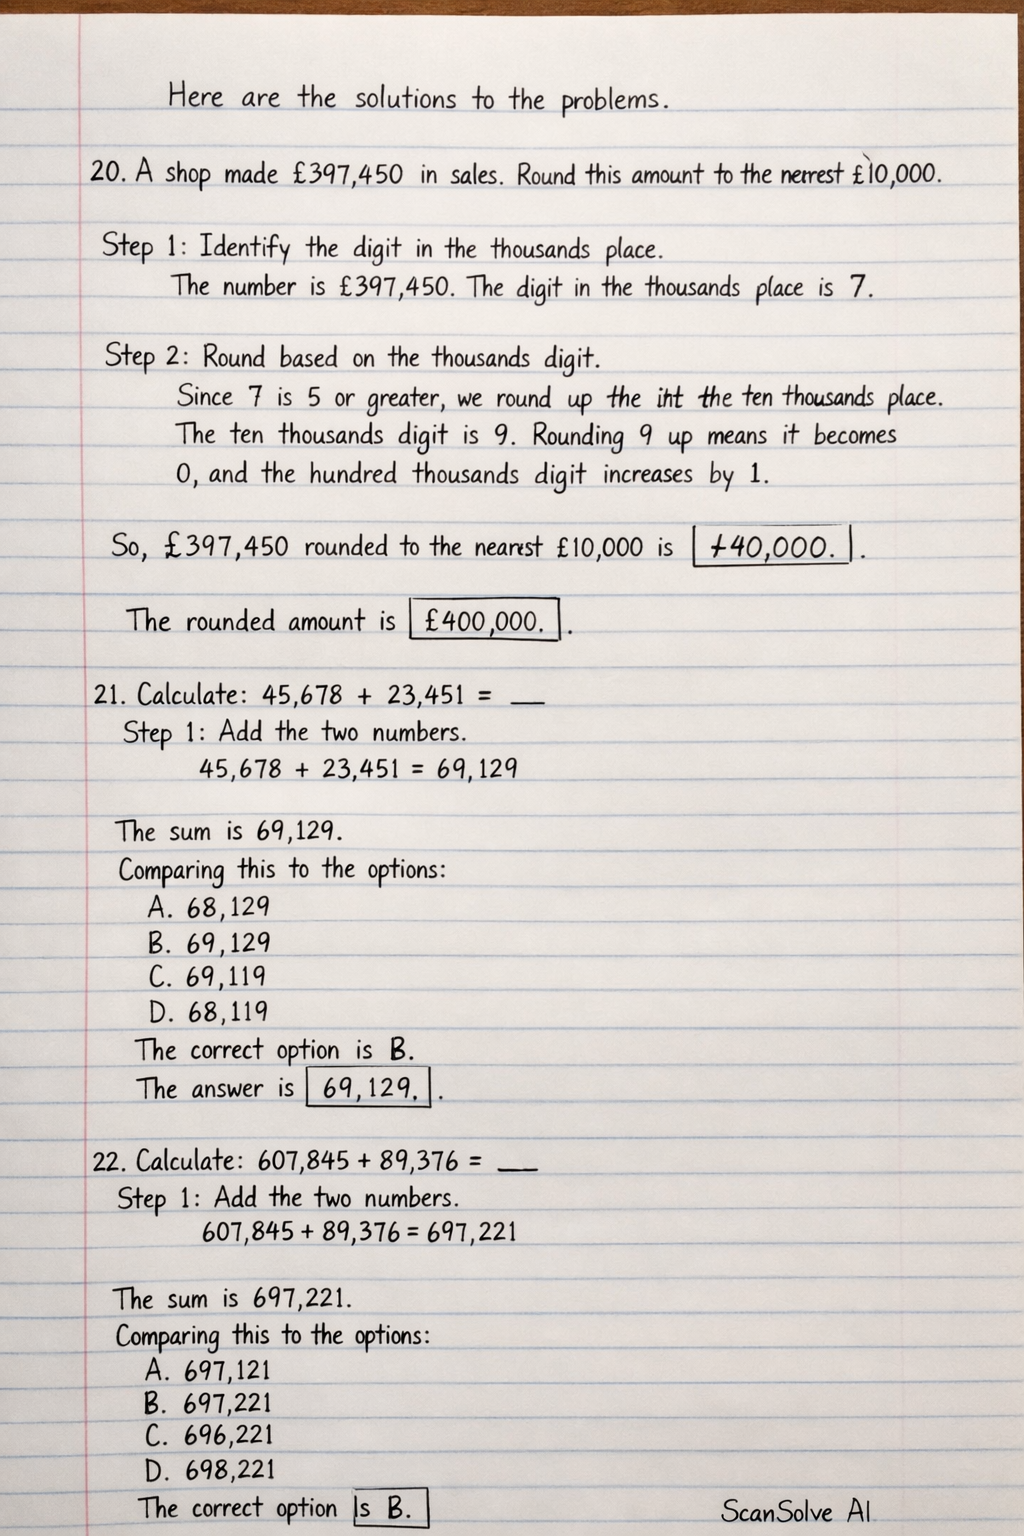 Here are the solutions to the problems.
20. A shop made £397,450 in sales. Round this amount to the nerrest £10,000.
Step 1: Identify the digit in the thousands place.
The number is £397,450. The digit in the thousands place is 7.
Step 2: Round based on the thousands digit.
Since 7 is 5 or greater, we round up the iht the ten thousands place.
The ten thousands digit is 9. Rounding 9 up means it becomes
0, and the hundred thousands digit increases by 1.
So, £397,450 rounded to the nearest £10,000 is 40,000..
The rounded amount is £400,000..
21. Calculate: 45,678 + 23,451 = __
Step 1: Add the two numbers.
45,678 + 23,451 = 69,129
The sum is 69,129.
Comparing this to the options:
A. 68,129
B. 69,129
C. 69,119
D. 68,119
The correct option is B.
The answer is 69,129..
22. Calculate: 607,845 + 89,376 = __
Step 1: Add the two numbers.
607,845 + 89,376 = 697,221
The sum is 697,221.
Comparing this to the options:
A. 697,121
B. 697,221
C. 696,221
D. 698,221
The correct option is B.
ScanSolve AI